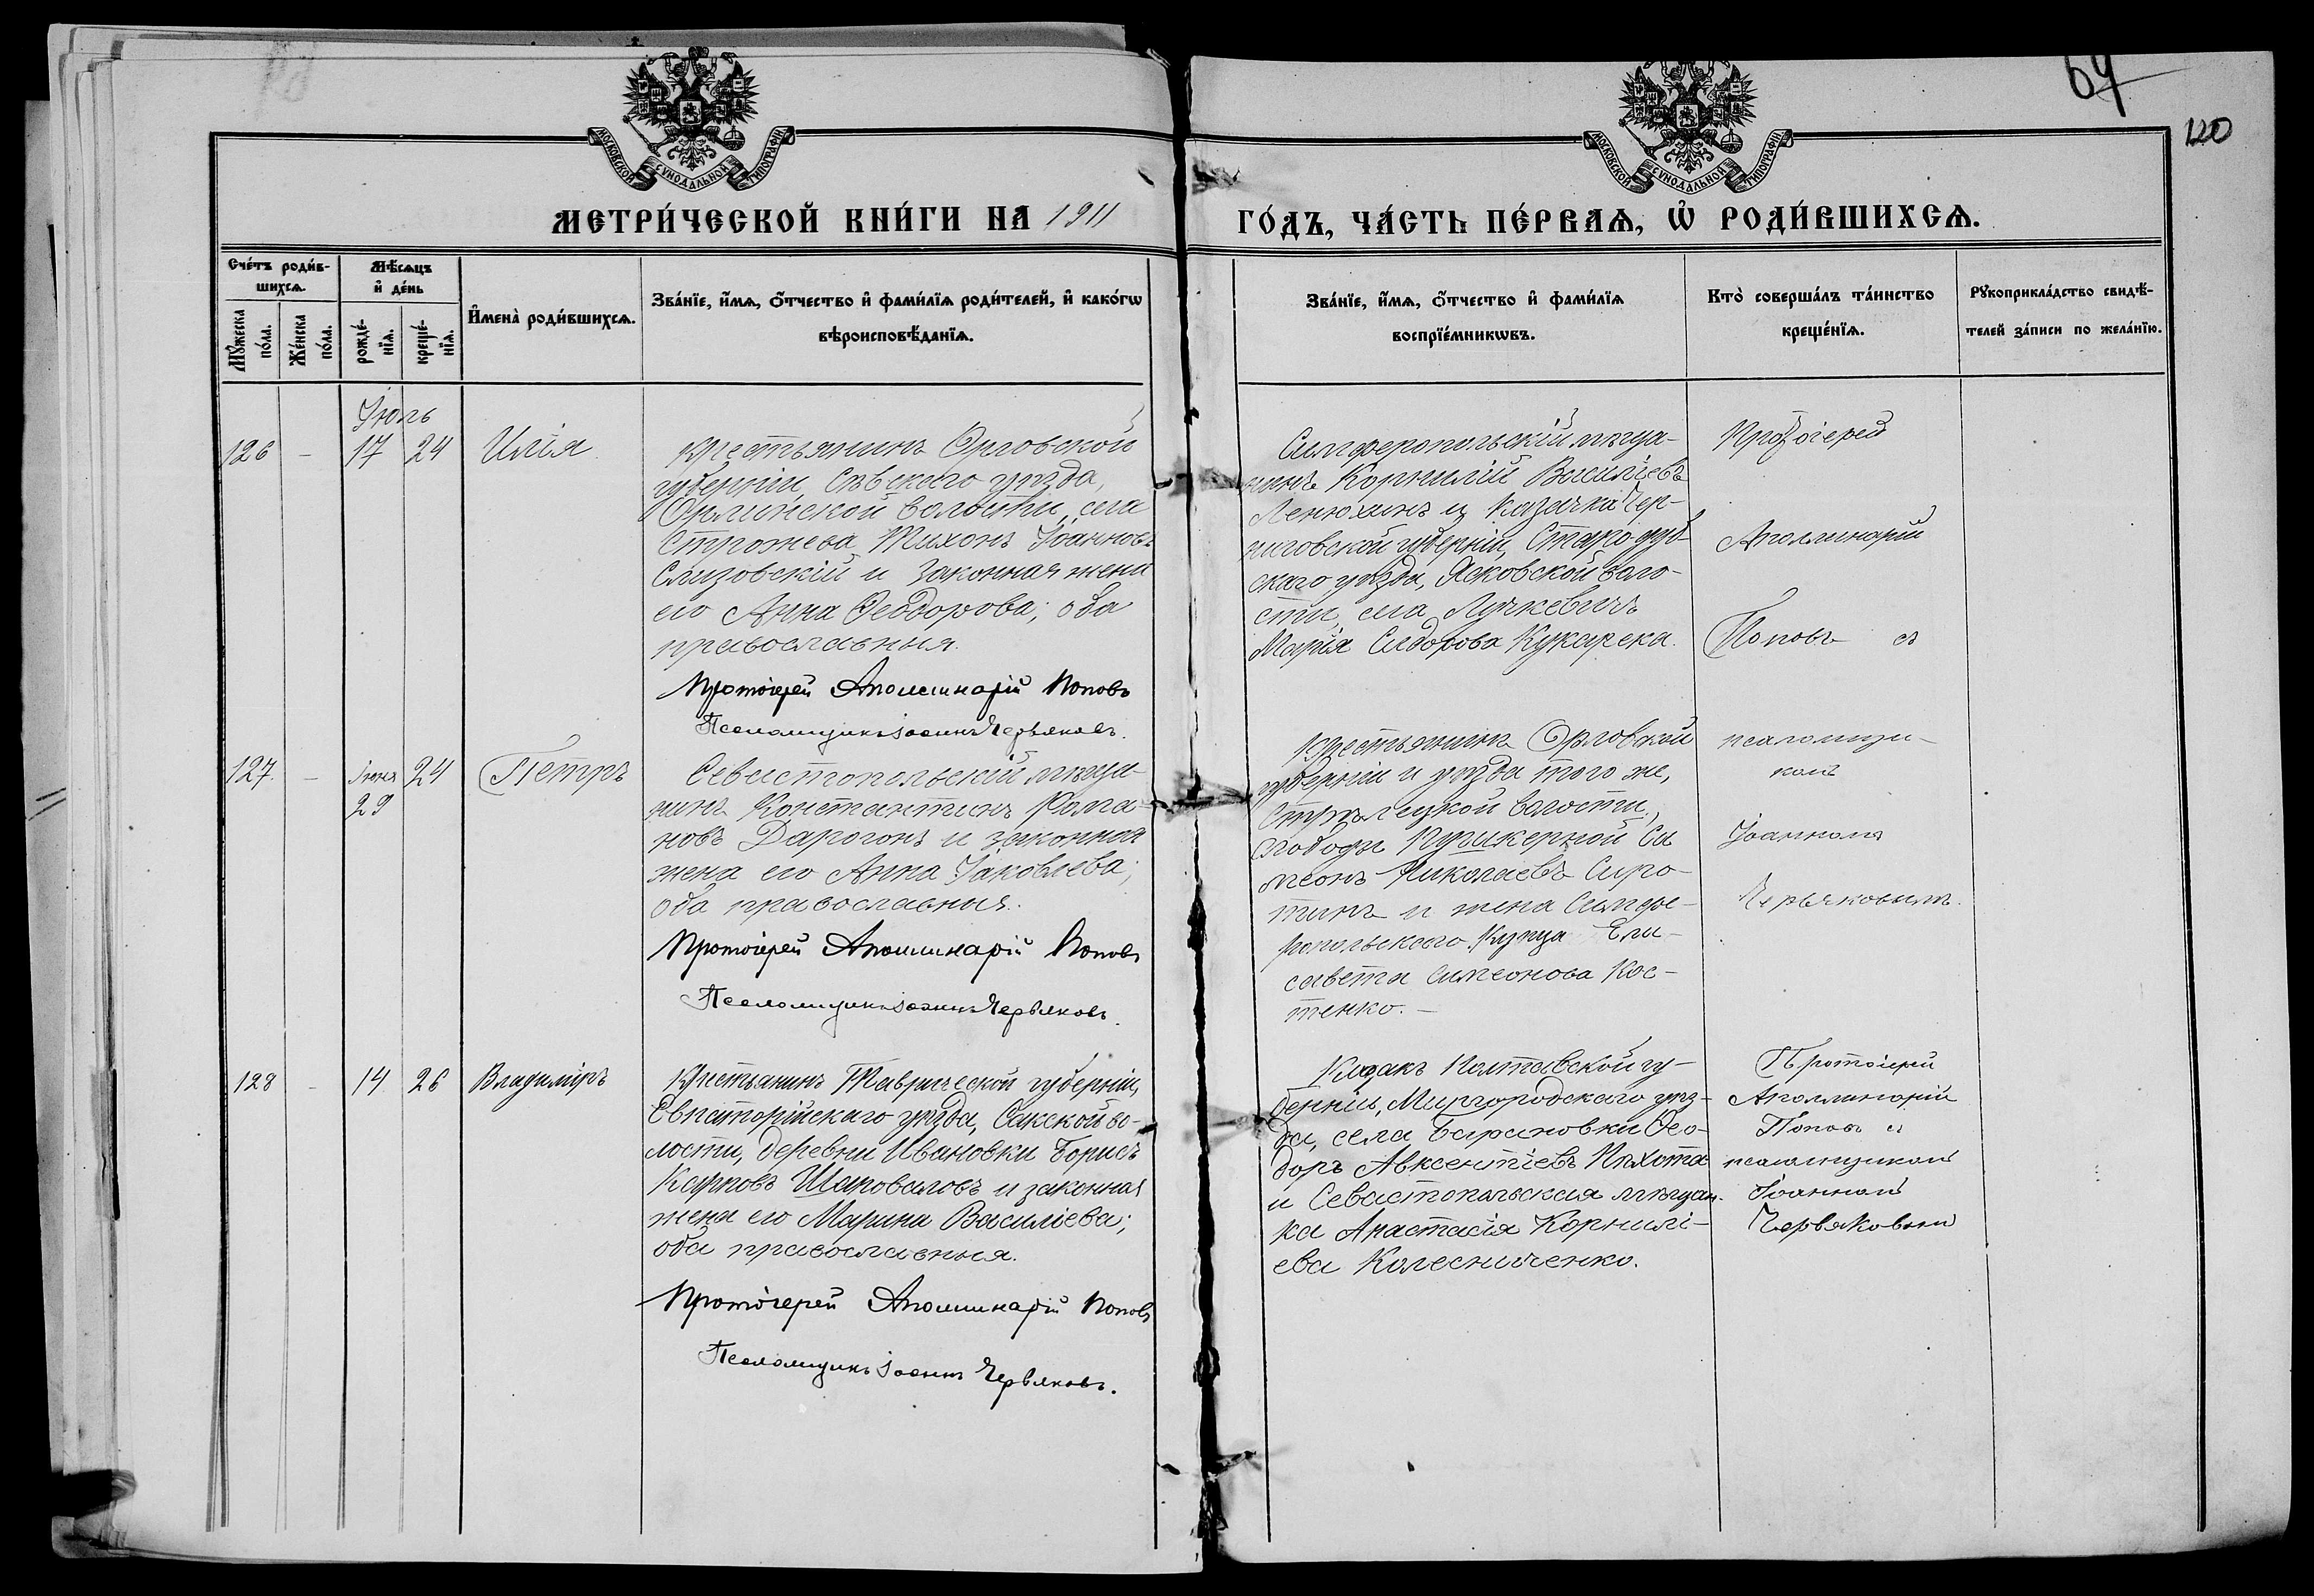 64
120
МОСКОВСКОЙ СѴНОДАЛЬНОЙ ТИПОГРАФІИ
МОСКОВСКОЙ СѴНОДАЛЬНОЙ ТИПОГРАФІИ
МЕТРИ́ЧЕСКОЙ КНИ́ГИ НА 1911
ГО́ДЪ, ЧА́СТЬ ПЕ́РВАѦ, Ѽ РОДИ́ВШИХСѦ.
Сче́тъ роди́в-
шихсѧ.
Мꙋ́жеска по́ла.
Же́нска по́ла.
Мѣ́сѧцъ
и҆ де́нь
рожде́-
нїѧ.
креще́-
нїѧ.
И҆мена̀ роди́вшихсѧ.
Зва́нїе, и҆́мѧ, ѻ҆́тчество и҆ фами́лїѧ роди́телей, и҆ како́гѡ
вѣроисповѣ́данїѧ.
Зва́нїе, и҆́мѧ, ѻ҆́тчество и҆ фами́лїѧ
воспрїе́мникѡвъ.
Кто̀ соверша́лъ та́инство
креще́нїѧ.
Рꙋкоприкла́дство свидѣ́-
телей за́писи по жела́нїю.
Іюль
126 — 17 24 Илія
Крестьянинъ Орловской
губерніи, Сѣвскаго уѣзда,
волости, села
Тихонъ Іоанновъ
Слизовскій и законная жена
его Анна Ѳеодорова; оба
православныя.
Протоіерей Аполлинарій Поповъ
Псаломщикъ Іоаннъ Червяковъ.
Симферопольскій мѣща-
нинъ Корнилій Васильевъ
Ленюхинъ и казачка Чер-
ниговской губерніи, Стародуб-
скаго уѣзда, Ясковской воло-
сти, села Лучкевичъ
Марія Сидорова Кукарека.
Протоіерей
Аполлинарій
Поповъ съ
127 — Іюня 24 Петръ
29
Севастопольскій мѣща-
нинъ Константинъ Рома-
новъ Дарогонъ и законная
жена его Анна Іаковлева;
оба православныя.
Протоіерей Аполлинарій Поповъ
Псаломщикъ Іоаннъ Червяковъ.
Крестьянинъ Орловской
губерніи и уѣзда того же,
Стрѣлецкой волости,
слободы Пушкерной Си
меонъ Николаевъ Сиро-
тинъ и жена Симфе-
ропольскаго купца Ели-
савета Симеонова Кос-
тенко. —
псаломщи-
комъ
Іоанномъ
Червяковымъ.
128 — 14 26 Владиміръ
Крестьянинъ Таврической губерніи,
Евпаторійскаго уѣзда, Сакской во-
лости, деревни Ивановки Борисъ
Карповъ Шаповаловъ и законная
жена его Марина Василіева;
оба православныя.
Протоіерей Аполлинарій Поповъ
Псаломщикъ Іоаннъ Червяковъ.
Казакъ Полтавской гу-
берніи, Миргородскаго уѣз-
да, села Барановки Ѳео-
доръ Авксентіевъ Пѣхота
и Севастопольская мѣщан-
ка Анастасія Корнилі-
ева Колесниченко.
Протоіерей
Аполлинарій
Поповъ съ
псаломщикомъ
Іоанномъ
Червяковымъ